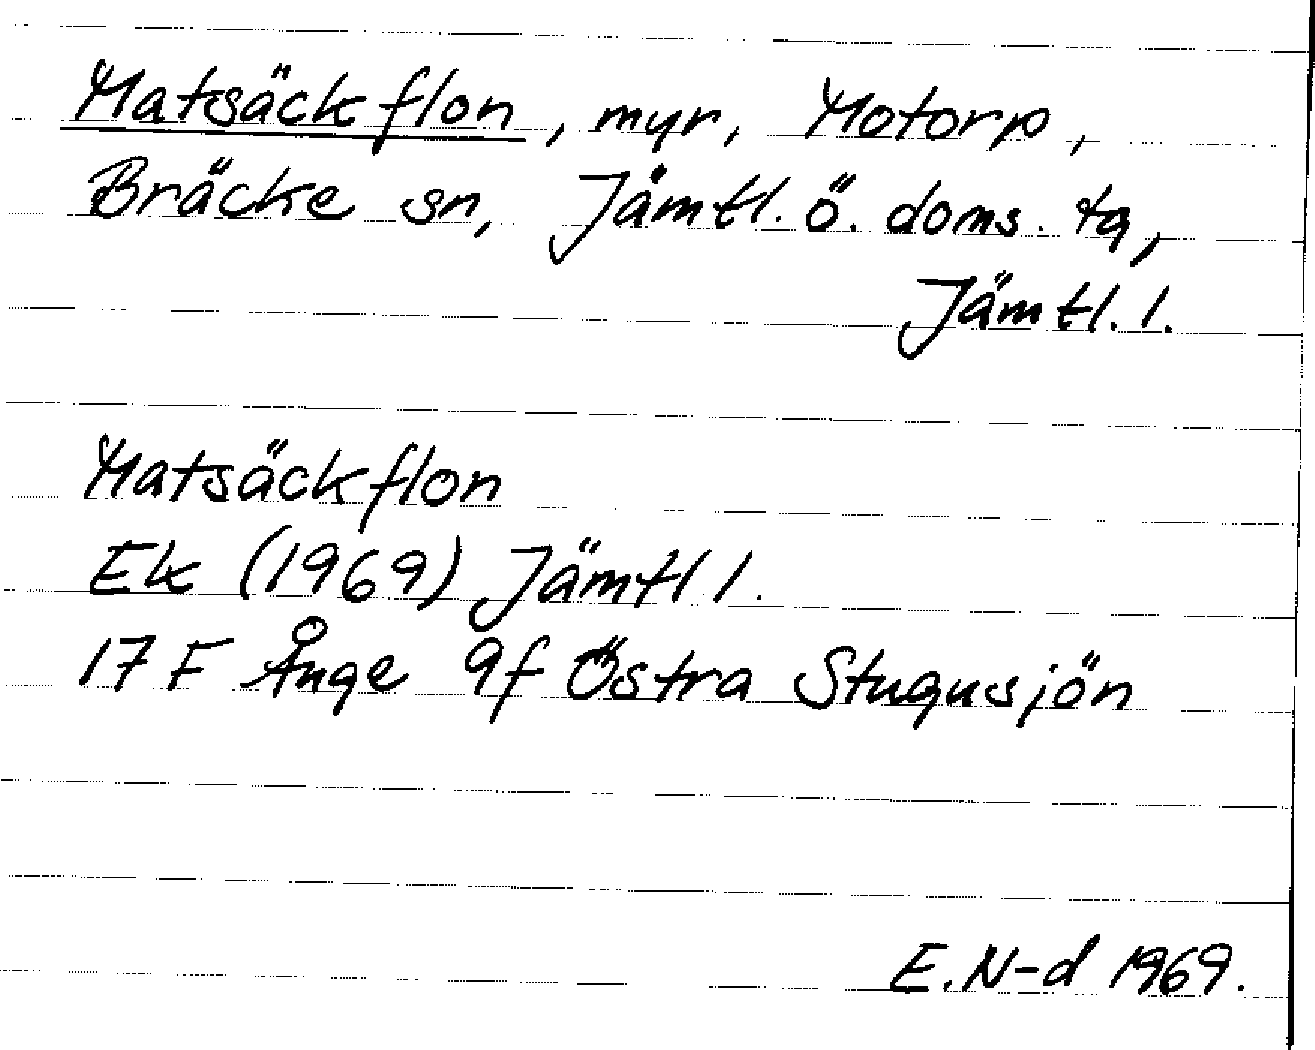 Matsäckflon, myr, Motorp,
Bräcke sn, Jämtl. ö. doms. tg,
Jämtl. l.
Matsäckflon
Ek (1969) Jämtl l.
17 F Ånge 9f Östra Stugusjön
E. N-d 1969.